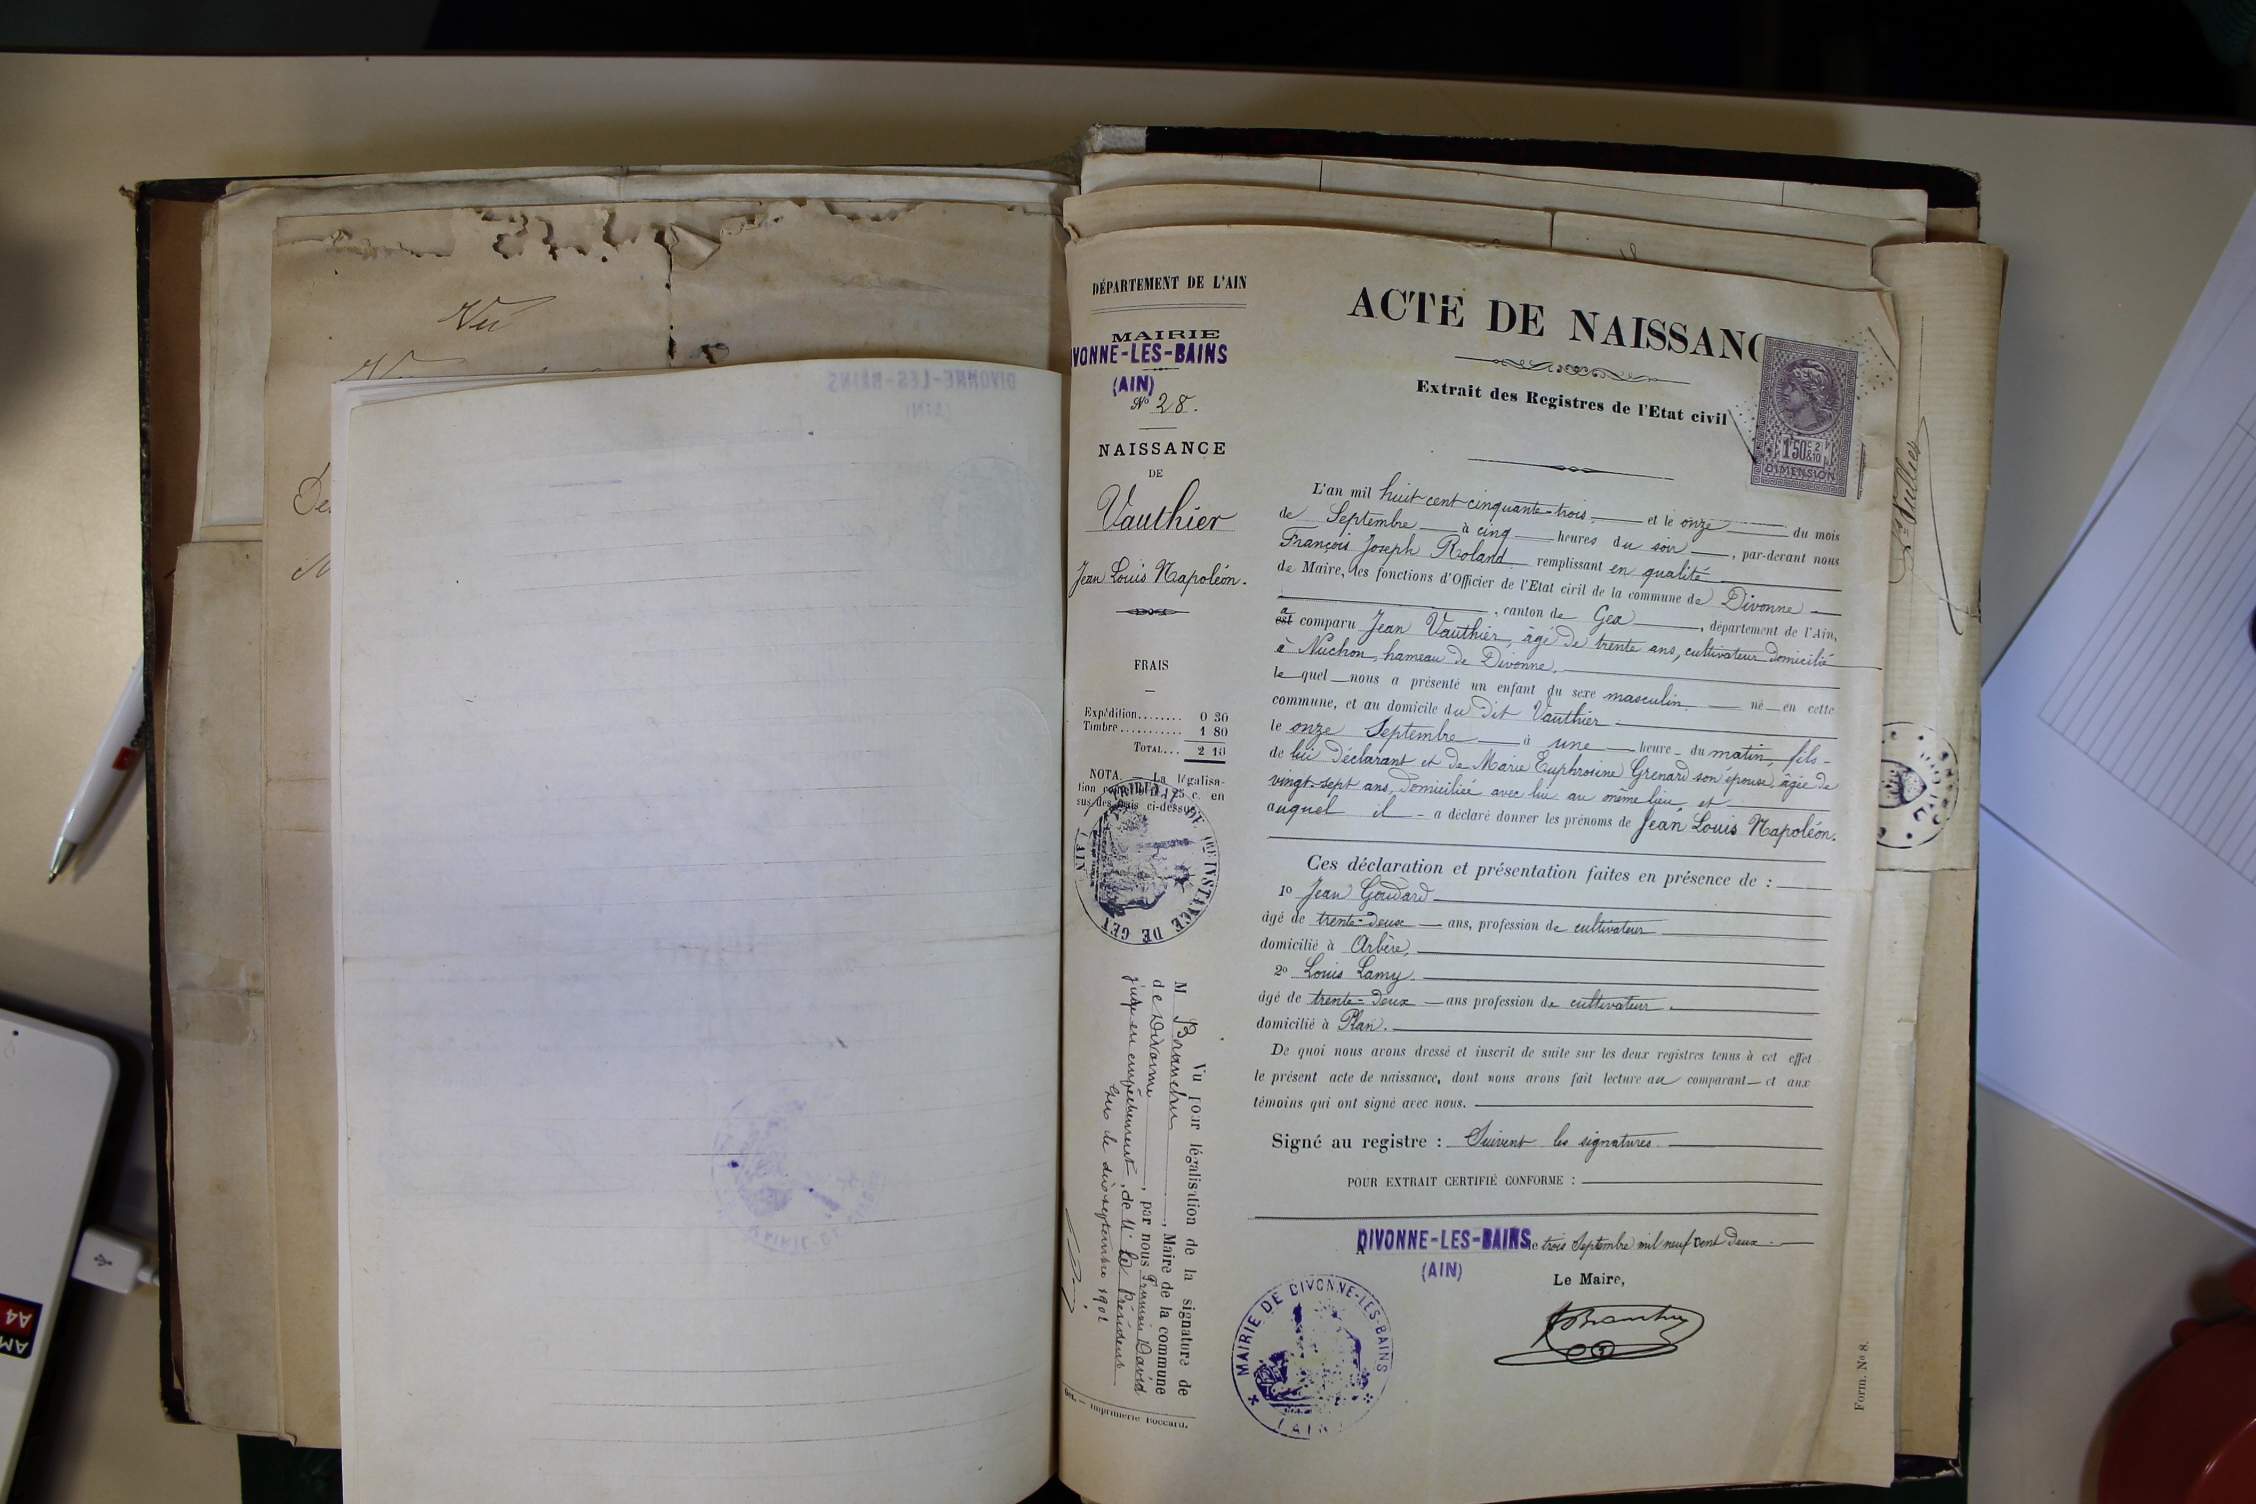 Vu
DÉPARTEMENT DE L'AIN
MAIRIE
VONNE-LES-BAINS
(AIN)
No 28.
NAISSANCE
DE
Vauthier
Jean Louis Napoléon.
FRAIS
Expédition........ 0 30
Timbre........... 1 80
TOTAL... 2 10
NOTA. — La légalisa-
tion 25 c. en
sus des frais ci-dessus.
TRIBUNAL DE 1RE INSTANCE DE GEX
(AIN)
Vu pour légalisation de la signature de
M Branchu, Maire de la commune
de Divonne, par nous Francis David
juge en empêchement de M. le Président
Gex le dix septembre 1902
Gex. — Imprimerie Boccard.
ACTE DE NAISSANC
Extrait des Registres de l'Etat civil
1F50c 2 &10
DIMENSION
L'an mil huit cent cinquante-trois et le onze du mois
de Septembre à cinq heures du soir, par-devant nous
François Joseph Roland remplissant en qualité
de Maire, les fonctions d'Officier de l'Etat civil de la commune de Divonne
, canton de Gex, département de l'Ain,
a
est comparu Jean Vauthier, âgé de trente ans, cultivateur domicilié
à Nuchon, hameau de Divonne.
lequel nous a présenté un enfant du sexe masculin né en cette
commune, et au domicile du dit Vauthier
le onze Septembre à une heure du matin, fils
de lui déclarant et de Marie Euphrosine Grenard son épouse, âgée de
vingt-sept ans, domiciliée avec lui au même lieu, et
auquel il a déclaré donner les prénoms de Jean Louis Napoléon.
Ces déclaration et présentation faites en présence de :
1o Jean Goudard
âgé de trente-deux ans, profession de cultivateur
domicilié à Arbère,
2o Louis Lamy.
âgé de trente-deux ans profession de cultivateur.
domicilié à Plan.
De quoi nous avons dressé et inscrit de suite sur les deux registres tenus à cet effet
le présent acte de naissance, dont nous avons fait lecture au comparant et aux
témoins qui ont signé avec nous.
Signé au registre : Suivent les signatures.
POUR EXTRAIT CERTIFIÉ CONFORME :
DIVONNE-LES-BAINS, le trois Septembre mil neuf cent deux.
(AIN)
Le Maire,
MAIRIE DE DIVONNE-LES-BAINS
(AIN)
Form. No 8.
A4